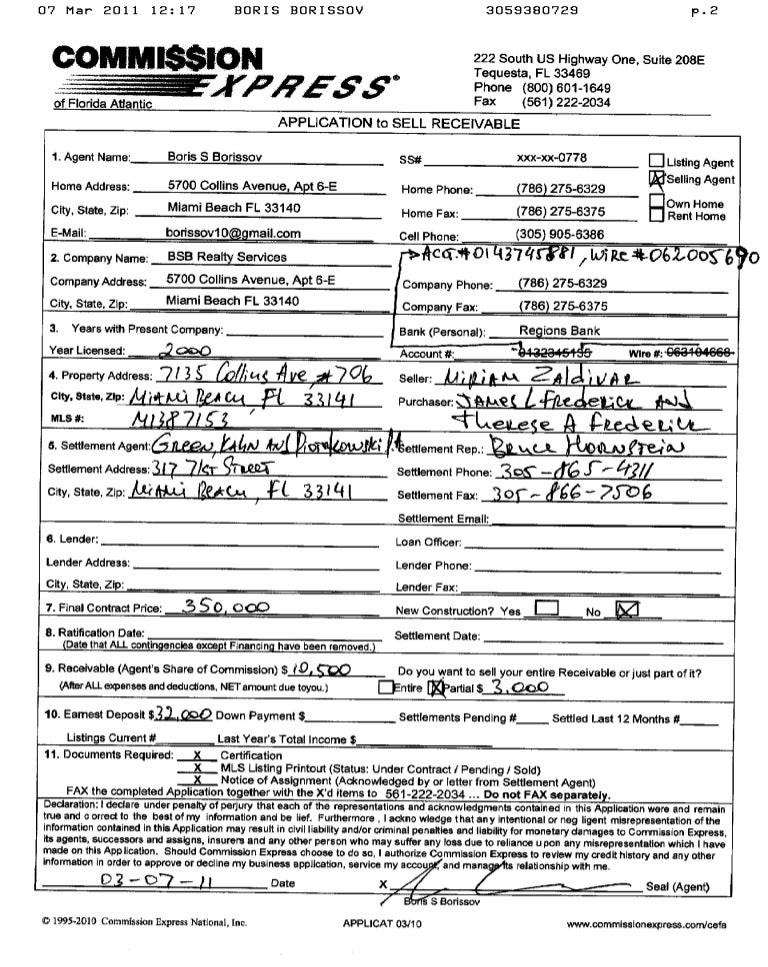 07 Mar 2011 12:17 BORIS BORISSOV 3059380729 p.2
COMMI$$ION
EXPRESS®
of Florida Atlantic
222 South US Highway One, Suite 208E
Tequesta, FL 33469
Phone (800) 601-1649
Fax (561) 222-2034
APPLICATION to SELL RECEIVABLE
1. Agent Name: Boris S Borissov SS# xxx-xx-0778 Listing Agent
Selling Agent
Home Address: 5700 Collins Avenue, Apt 6-E Home Phone: (786) 275-6329
City, State, Zip: Miami Beach FL 33140 Home Fax: (786) 275-6375 Own Home
Rent Home
E-Mail: borissov10@gmail.com Cell Phone: (305) 905-6386
2. Company Name: BSB Realty Services ACCT.#0143745881, WIRE #062005690
Company Address: 5700 Collins Avenue, Apt 6-E Company Phone: (786) 275-6329
City, State, Zip: Miami Beach FL 33140 Company Fax: (786) 275-6375
3. Years with Present Company: Bank (Personal): Regions Bank
Year Licensed: 2000 Account #: 0132345195 Wire #: 063104668
4. Property Address: 7135 Collins Ave, #706 Seller: MIRIAM ZALDIVAR
City, State, Zip: MIAMI BEACH, FL 33141 Purchaser: JAMES L FREDERICK AND
MLS #: M1387153 THERESE A FREDERICK
5. Settlement Agent: GREEN KAHN AND Piotrkowski Settlement Rep.: BRUCE HORNSTEIN
Settlement Address: 317 71ST STREET Settlement Phone: 305-865-4311
City, State, Zip: MIAMI BEACH, FL 33141 Settlement Fax: 305-866-7506
Settlement Email:
6. Lender: Loan Officer:
Lender Address: Lender Phone:
City, State, Zip: Lender Fax:
7. Final Contract Price: 350,000 New Construction? Yes No X
8. Ratification Date: Settlement Date:
(Date that ALL contingencies except Financing have been removed.)
9. Receivable (Agent's Share of Commission) $ 10,500 Do you want to sell your entire Receivable or just part of it?
(After ALL expenses and deductions, NET amount due toyou.) Entire X Partial $ 3,000
10. Earnest Deposit $ 32,000 Down Payment $ Settlements Pending # Settled Last 12 Months #
Listings Current # Last Year's Total Income $
11. Documents Required: X Certification
X MLS Listing Printout (Status: Under Contract / Pending / Sold)
X Notice of Assignment (Acknowledged by or letter from Settlement Agent)
FAX the completed Application together with the X'd items to 561-222-2034 ... Do not FAX separately.
Declaration: I declare under penalty of perjury that each of the representations and acknowledgments contained in this Application were and remain
true and correct to the best of my information and be lief. Furthermore, I ackno wledge that any intentional or neg ligent misrepresentation of the
information contained in this Application may result in civil liability and/or criminal penalties and liability for monetary damages to Commission Express,
its agents, successors and assigns, insurers and any other person who may suffer any loss due to reliance upon any misrepresentation which I have
made on this Application. Should Commission Express choose to do so, I authorize Commission Express to review my credit history and any other
information in order to approve or decline my business application, service my account, and manage its relationship with me.
03-07-11 Date X Seal (Agent)
Boris S Borissov
© 1995-2010 Commission Express National, Inc. APPLICAT 03/10 www.commissionexpress.com/cefa